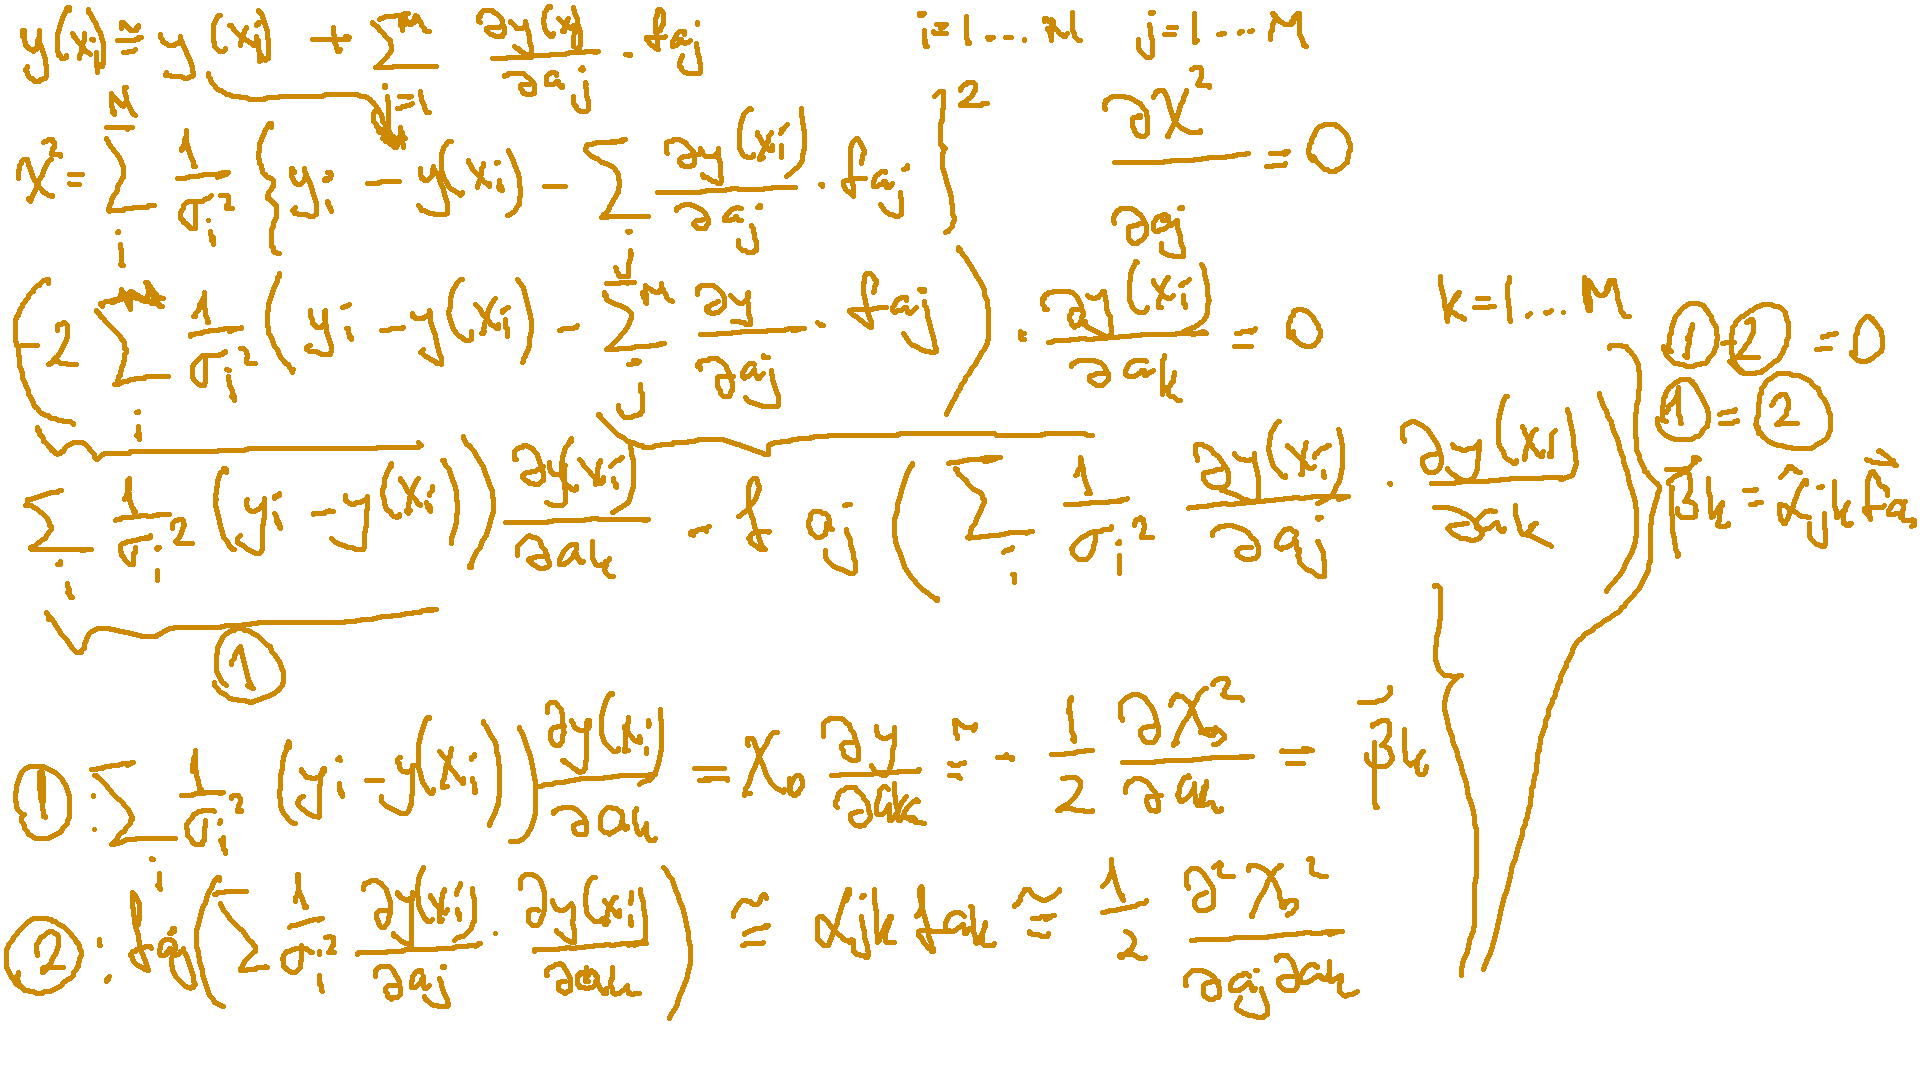 y(xi) ≅ y(xi) + ∑_{j=1}^{M} ∂y(xi)/∂aj · faj   i=1...N   j=1...M
χ² = ∑_{i}^{N} 1/σi² { yi − y(xi) − ∑_{j} ∂y(xi)/∂aj · faj }²   ∂χ²/∂aj = 0
(−2 ∑_{i} 1/σi² (yi − y(xi) − ∑_{j}^{M} ∂y/∂aj · faj) · ∂y(xi)/∂ak = 0   k=1...M   ①-② = 0
① = ②
∑_{i} 1/σi² (yi − y(xi)) ) ∂y(xi)/∂ak − f aj ( ∑_{i} 1/σi² ∂y(xi)/∂aj · ∂y(xi)/∂ak )   βk = αjk fa
①
①: ∑_{i} 1/σi² (yi − y(xi)) ) ∂y(xi)/∂ak = χ₀ ∂y/∂ak ≅ − 1/2 ∂χ₀²/∂ak = βk
②: faj ( ∑ 1/σi² ∂y(xi)/∂aj · ∂y(xi)/∂ak ) ≅ αjk fak ≅ 1/2 ∂²χ₀²/∂aj∂ak